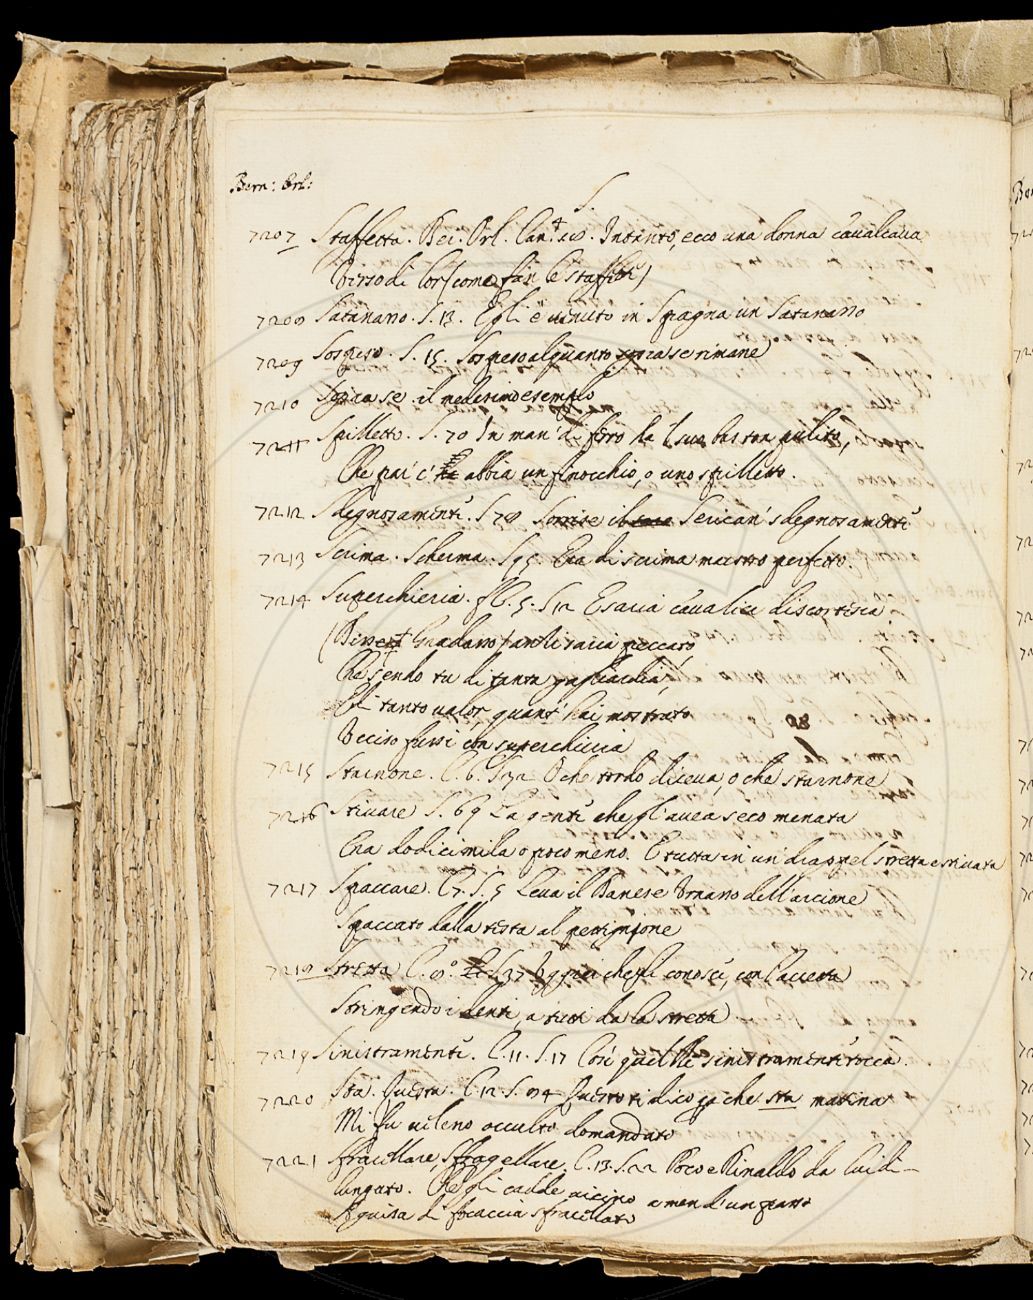 Bern: Orl:
S.
7207 Staffetta. Ber. Orl. Can. 4. Intanto, ecco una donna cavalcava
Verso di lor (come fan le staffette)
7208 Satanasso. S. 13. Egli è venuto in Spagna un Satanasso
7209 Sospeso. S. 15. Sospeso alquanto sopra se rimane
7210 Sopra se il medesimo esempio
7211 Spilletto. S. 70 In man' di ferro ha l suo baston pulito,
Che par c' abbia un finocchio, o uno spilletto.
7212 Sdegnosamente. S Sorrise il Serican' sdegnosamente
7213 Scrima. Scherma. S 95. Era di scrima maestro perfetto.
7214 Superchieria. C. 5. S 12 E saria cavalier discortesia
(Disse Gradasso) anzi saria peccato
Che sendo tu di tanta gagliardia,
Di tanto valor quant' hai mostrato
Ucciso fussi con superchieria
7215 Starnone. C. 6. S 32 O che tordo diceva, o che starnone
7216 Stivare S. 69 La gente che gl'avea seco menata
Era dodicimila o poco meno. E tutta in un drappel stretta e stivata
7217 Spaccare. C 7. S. 5 Leva il Danese Urnasso dell'arcione
Spaccato dalla testa al pettignone
7218 Stretta C. 8. S 37 poi che gli conosce, con l'accetta
Stringendo i denti, a tutti da la stretta
7219 Sinistramente. C. 11. S. 17 Così quel lì sinistramente tocca.
7220 Sta. Questa. C. 12. S. 84 Questo ti dico che sta matina
Mi fu veleno occulto domandato
7221 Sfracellare, Sfragellare. C. 13. S. 22 Poco e Rinaldo da lui di-
lungato. Che gli cadde vicino a men d'un piatto
A guisa di focaccia sfracellato